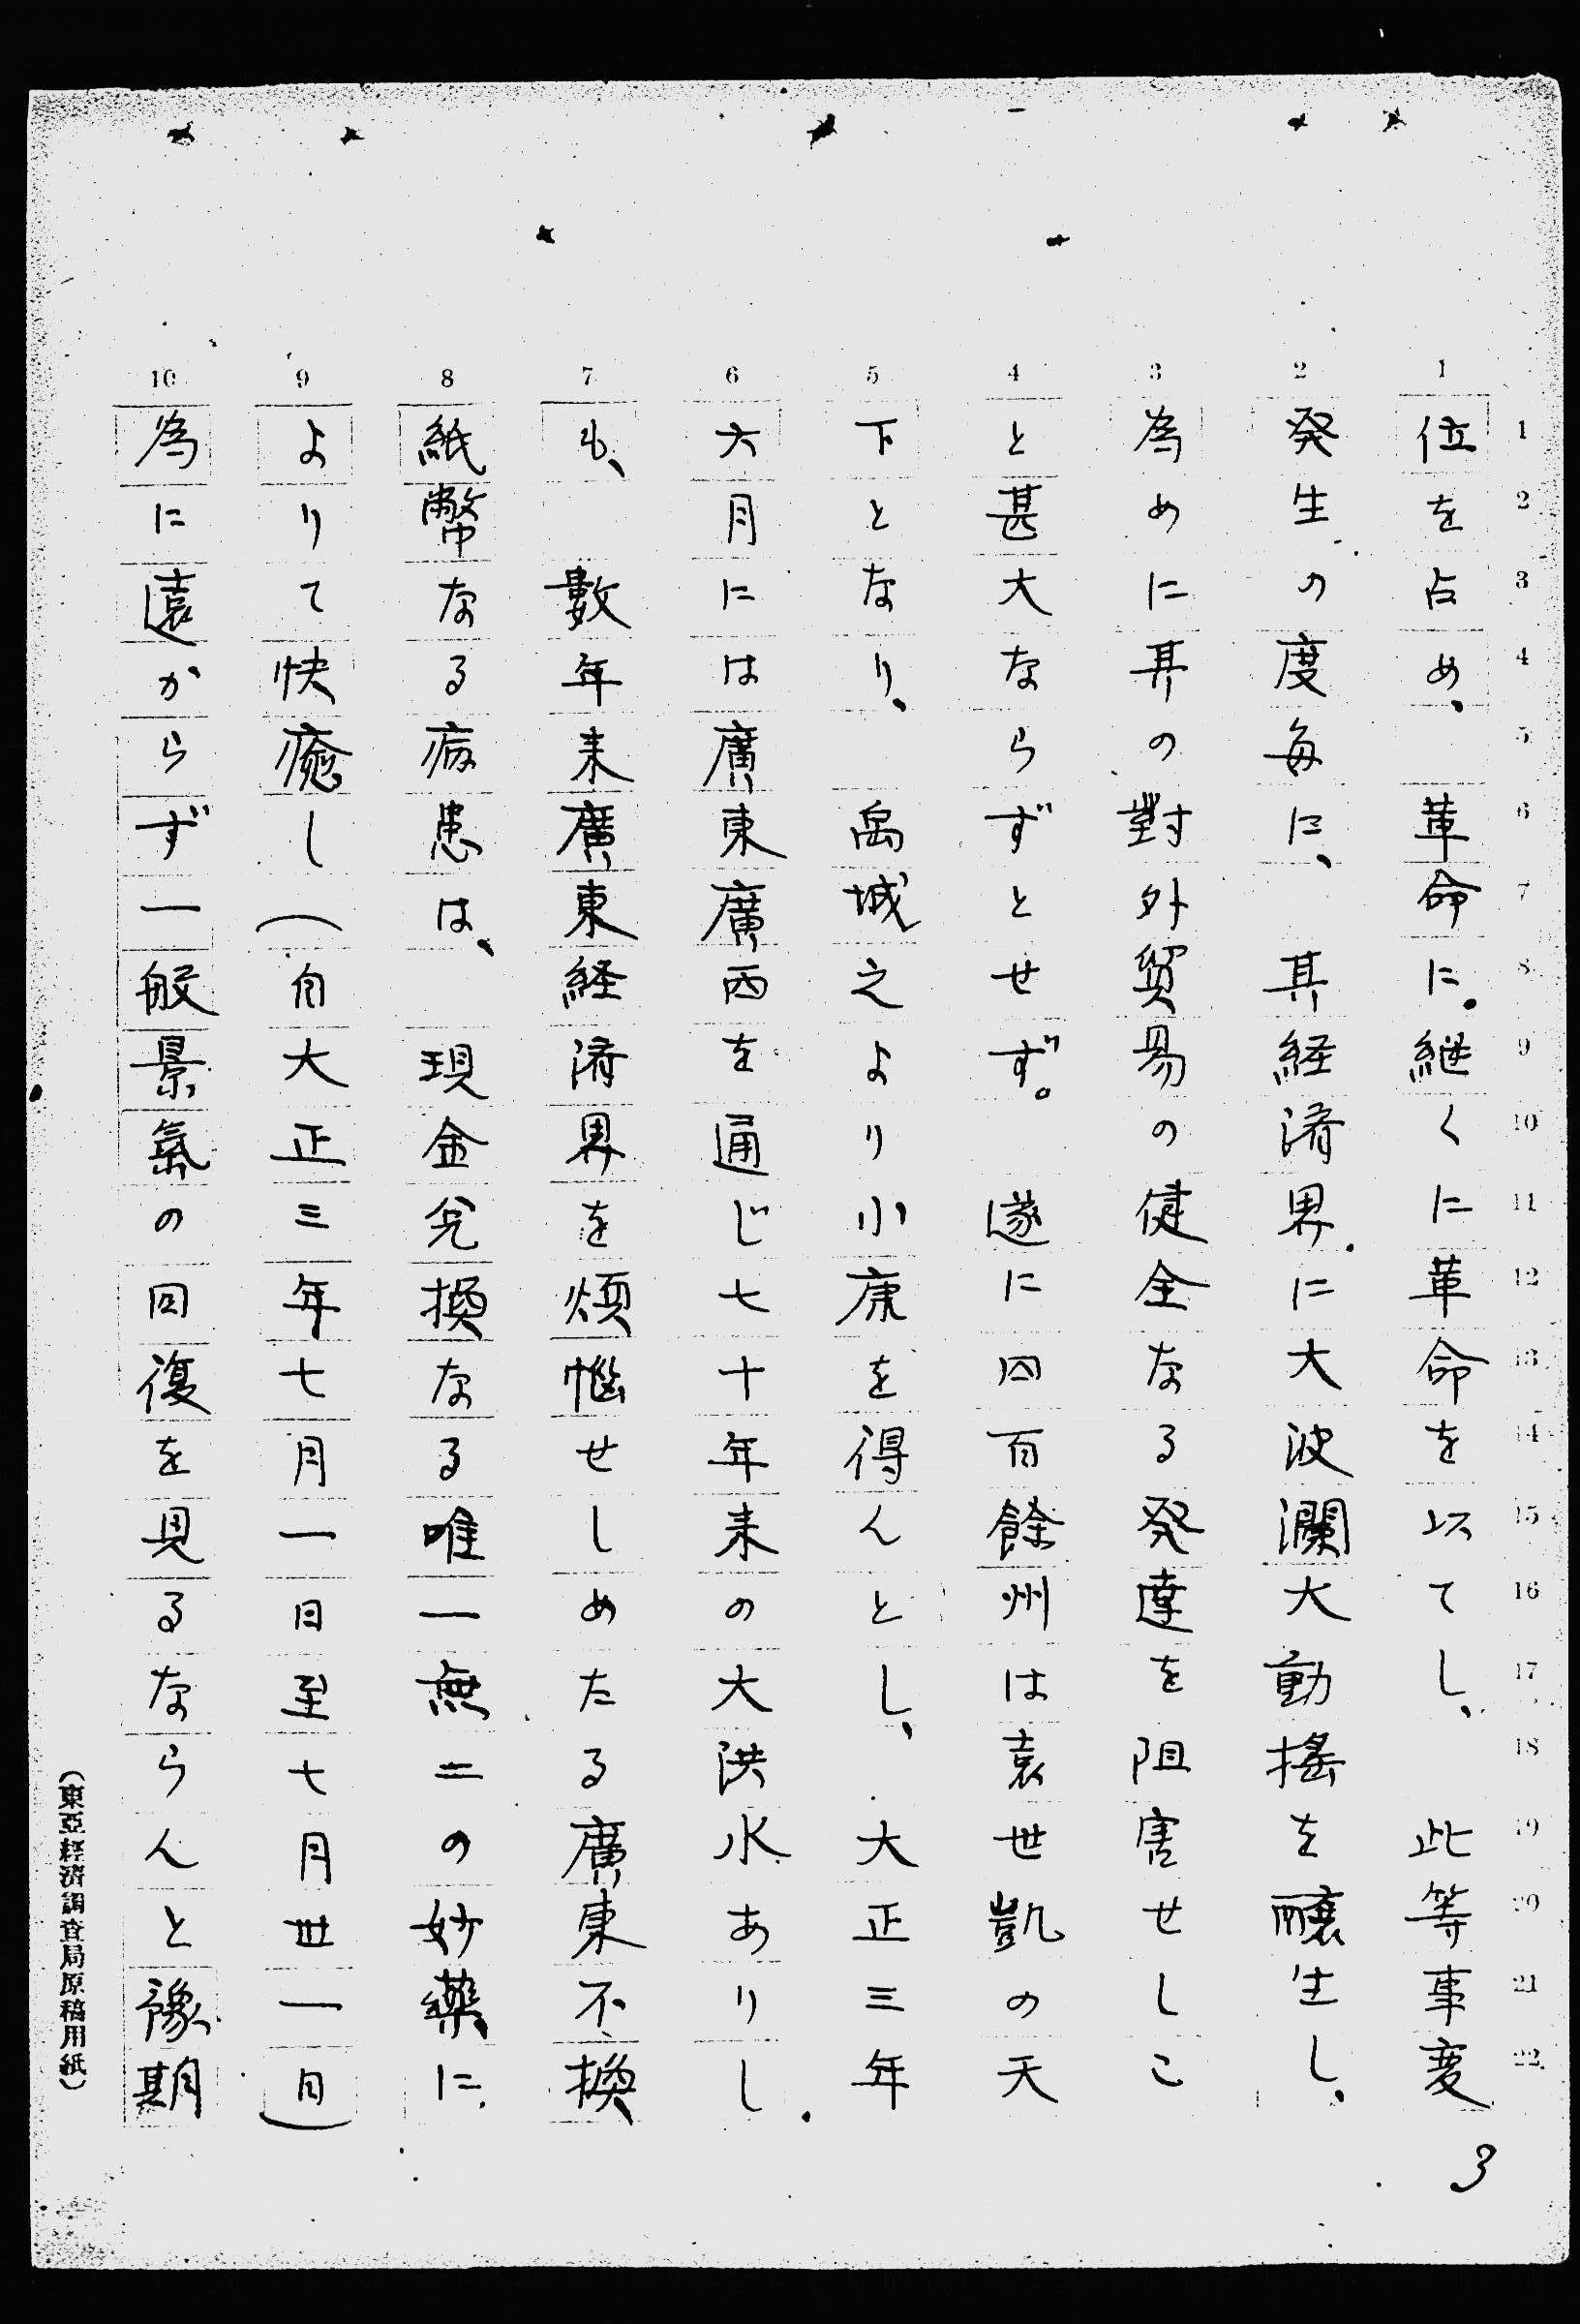 位を占め、革命に継ぐに革命を以てし、此等事変
発生の度毎に、其経済界に大波瀾大動搖を醸生し、
為めに其の對外貿易の健全なる発達を阻害せしこ
と甚大ならずとせず。遂に四百餘州は袁世凱の天
下となり、禹城之より小康を得んとし、大正三年
六月には廣東廣西を通じ七十年来の大洪水ありし
も、数年来廣東経済界を煩悩せしめたる廣東不換
紙幣なる病患は、現金兌換なる唯一無二の妙藥に
よりて快癒し(自大正三年七月一日至七月卅一日)
為に遠からず一般景氣の回復を見るならんと豫期
(東亞經濟調査局原稿用紙)
1 2 3 4 5 6 7 8 9 10
1 2 3 4 5 6 7 8 9 10 11 12 13 14 15 16 17 18 19 20 21 22
3